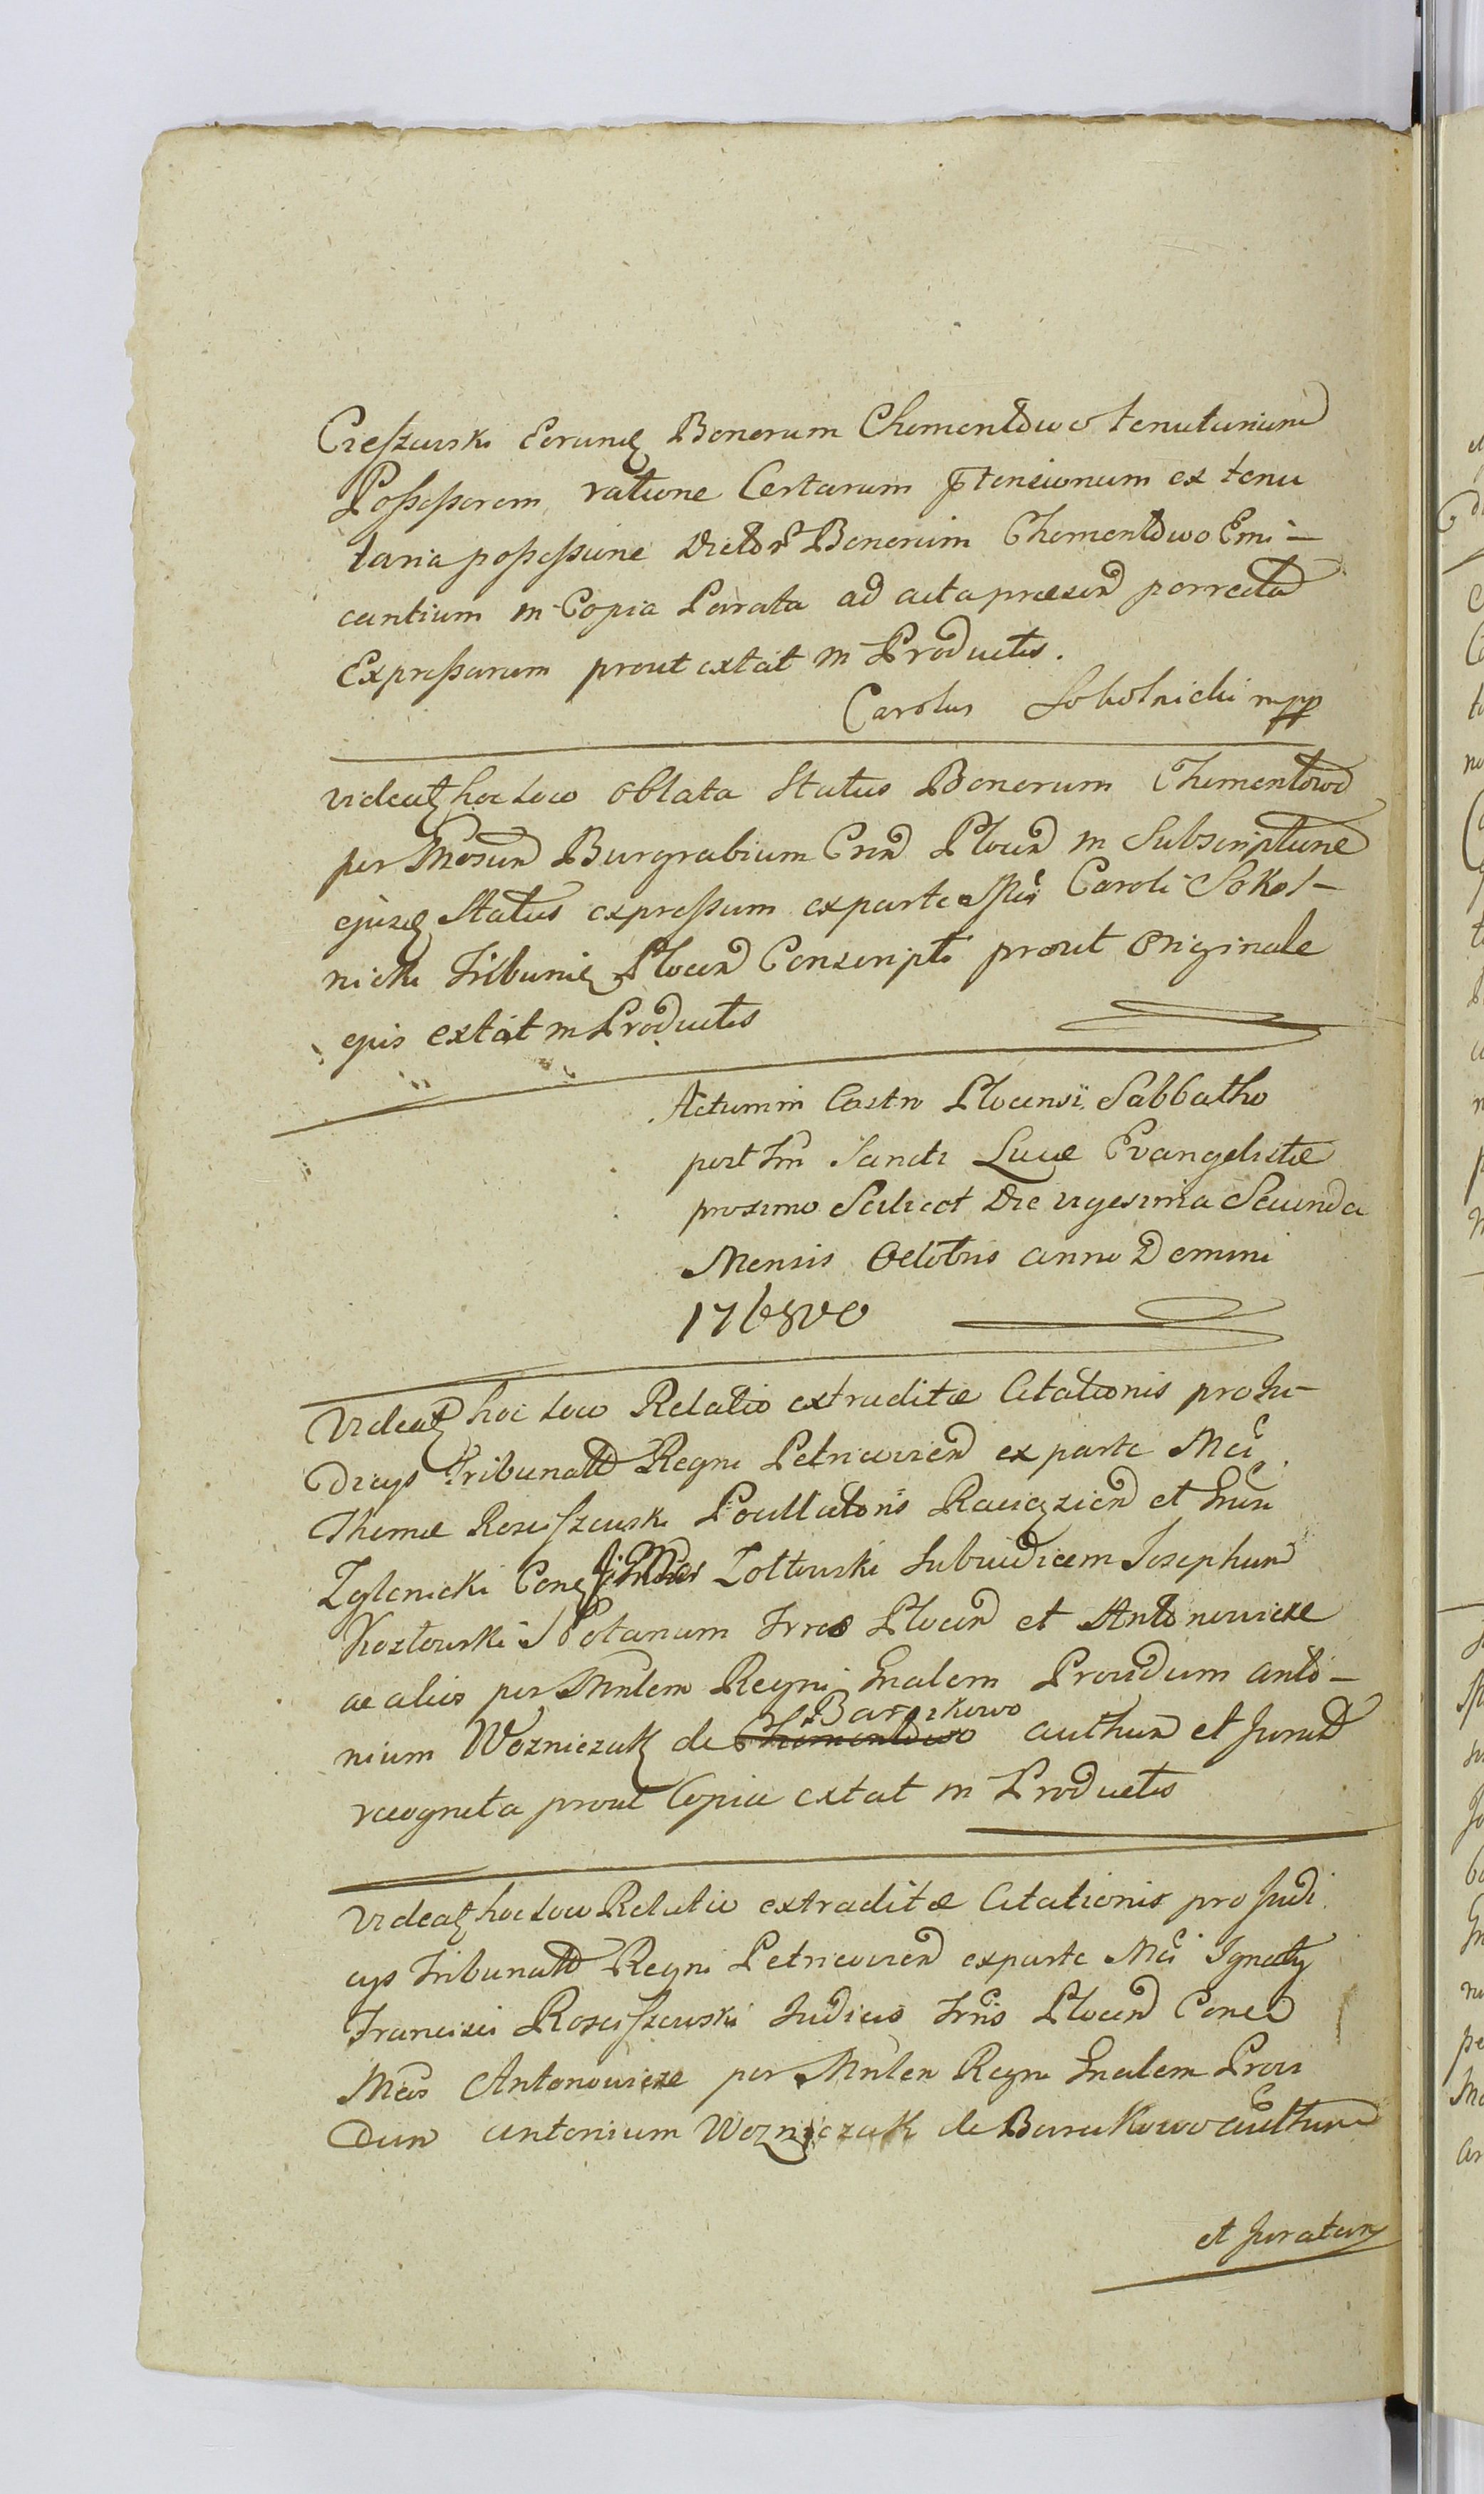 Cieſzewski Eorundq Bonorum Chomentowo tenutarium
Poſseſsorem ratione Certarum ptensionum ex tenu
taria poſseſsione Dictor Bonorum Chomentowo Emi-
cantium in Copia Porrata ad acta præsen porrecta
Expreſsarum prout extat in Productis.
Carolus Sokolnicki mpp
Videatq hoc Loco Oblata Status Bonorum Chomentowo
per Burgrabium Plocen in Subscriptione
ejusq Status expreſsum ex parte Caroli Sokol-
nicki Tribuni Plocen Conscripti prout Originale
ejus extat in Productis
Actum in Castro Plocensi Sabbatho
post Sancti Lucæ Evangelistæ
proximo Scilicet Die vigesima Secunda
Mensis Octobris anno Domini
17
Videatq hoc Loco Relatio extraditæ Citationis pro Ju-
dicijs Tribunal Regni Petricovien ex parte Mci
Thomæ Rosciſzewski Pocillatoris Raciązien et
Zglenicki Zołtowski Subiudicem Josephum
Kozłowski Notarium Trres Plocen et Antonowicze
ac alios per Mnlem Regni Gnalem Providum Anto-
nium Wozniczak de Chomentowo Barakowo authen et Jurat
recognita prout Copia extat in Productis
Videatq hoc Loco Relatio extraditæ Citationis pro Judi
cijs Tribunal Regni Petricovien ex parte Mci Ignatij
Francisci Rosciſzewski Judicis Trris Plocen
Mcos Antonowicze per Mnlem Regni Gnalem Provi
dum Antonium Wozniczak de Barakowo authen
et Juratum